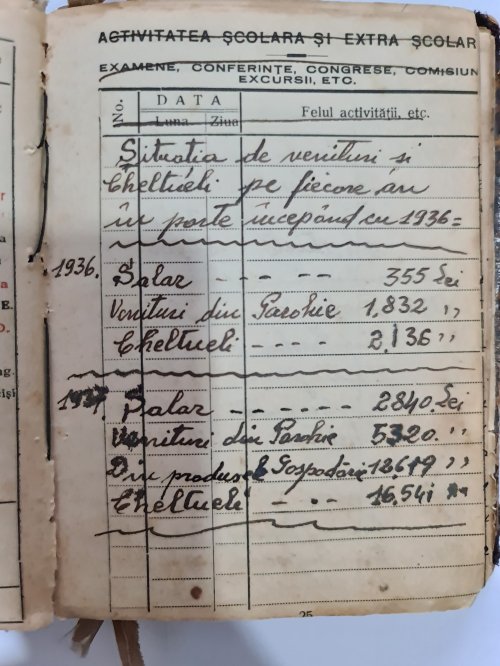 ACTIVITATEA ȘCOLARA ȘI EXTRA ȘCOLAR
EXAMENE, CONFERINȚE, CONGRESE, COMISIUN
EXCURSII, ETC.
No. DATA Felul activității, etc.
Luna Ziua
Situația de venituri si
Cheltueli pe fiecare an
în parte începând cu 1936=
1936. Salar - - - - 355 Lei
Venituri din Parohie 1,832 "
Cheltueli - - - - 2,136 "
1937. Salar - - - - - - 2840. Lei
Venituri din Parohie 5320. "
Din produsele Gospodăriei "
Cheltueli - - - 16.541 "
25